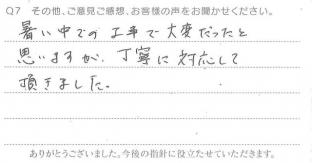 Q7 その他、ご意見ご感想、お客様の声をお聞かせください。
暑い中での工事で大変だったと
思いますが、丁寧に対応して
頂きました。
ありがとうございました。今後の指針に役立たせていただきます。